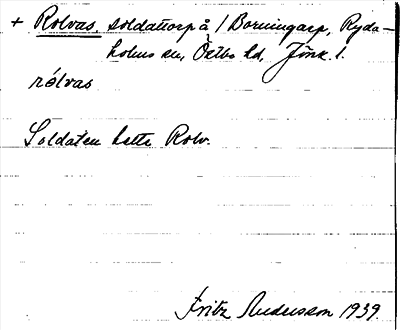 + Rolvas, soldattorp å / Borningarp, Ryda-
holms sn, Östbo hd, Jönk. l.
rólvas
Soldaten hette Rolv.
Fritz Andersson 1939.